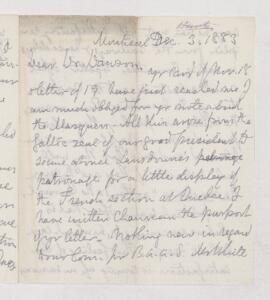 Hunt
Montreal Dec. 3. 1883
dear Dr Dawson,
yr kind of Nov. 15
& letter of 19. have just reached me I
am much obliged for yr note about
the Masquers. All this arose from the
zeal of our good president to
some
patronage for a little display of
the French section at Quebec. I
have written Chauveau the purport
of yr letter. Nothing new in regard
to our Com. for B.A.A.S. Mr White